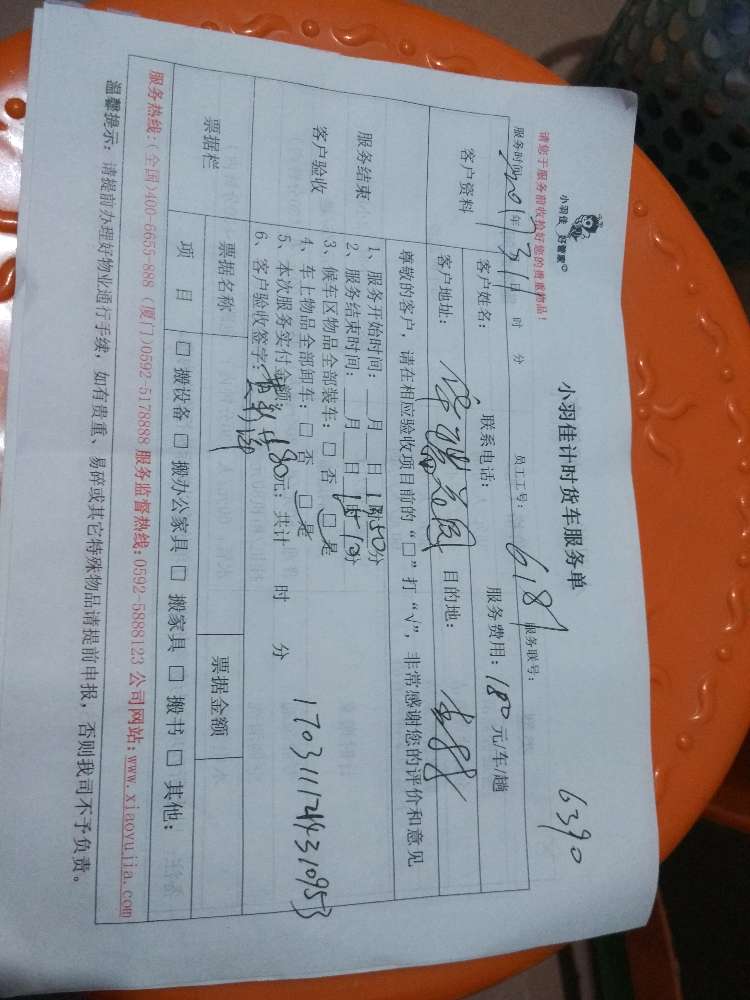 小羽佳
好管家
小羽佳计时货车服务单
6390
请您于服务前收拾好您的贵重物品!
服务时间: 年 日 时 分 员工工号: 618 服务联号:
客户资料
客户姓名: 联系电话: 服务费用: 180 元/车/趟
客户地址: 目的地:
尊敬的客户,请在相应验收项目前的“□”打“√”,非常感谢您的评价和意见
服务结束
客户验收
1、服务开始时间: 月 日 时50分
2、服务结束时间: 月 日 时10分
3、候车区物品全部装车: □ 否 □ 是
4、车上物品全部卸车: □ 否 □ 是
5、本次服务实付金额: 180元; 共计 时 分
6、客户验收签字:
1703111244310953
票据栏
票据名称
票据金额
项 目
□ 搬设备 □ 搬办公家具 □ 搬家具 □ 搬书 □ 其他:
服务热线:(全国)400-6655-888 (厦门)0592-5178888 服务监督热线:0592-5888123 公司网站:www.xiaoyujia.com
温馨提示: 请提前办理好物业通行手续,如有贵重、易碎或其它特殊物品请提前申报,否则我司不予负责。